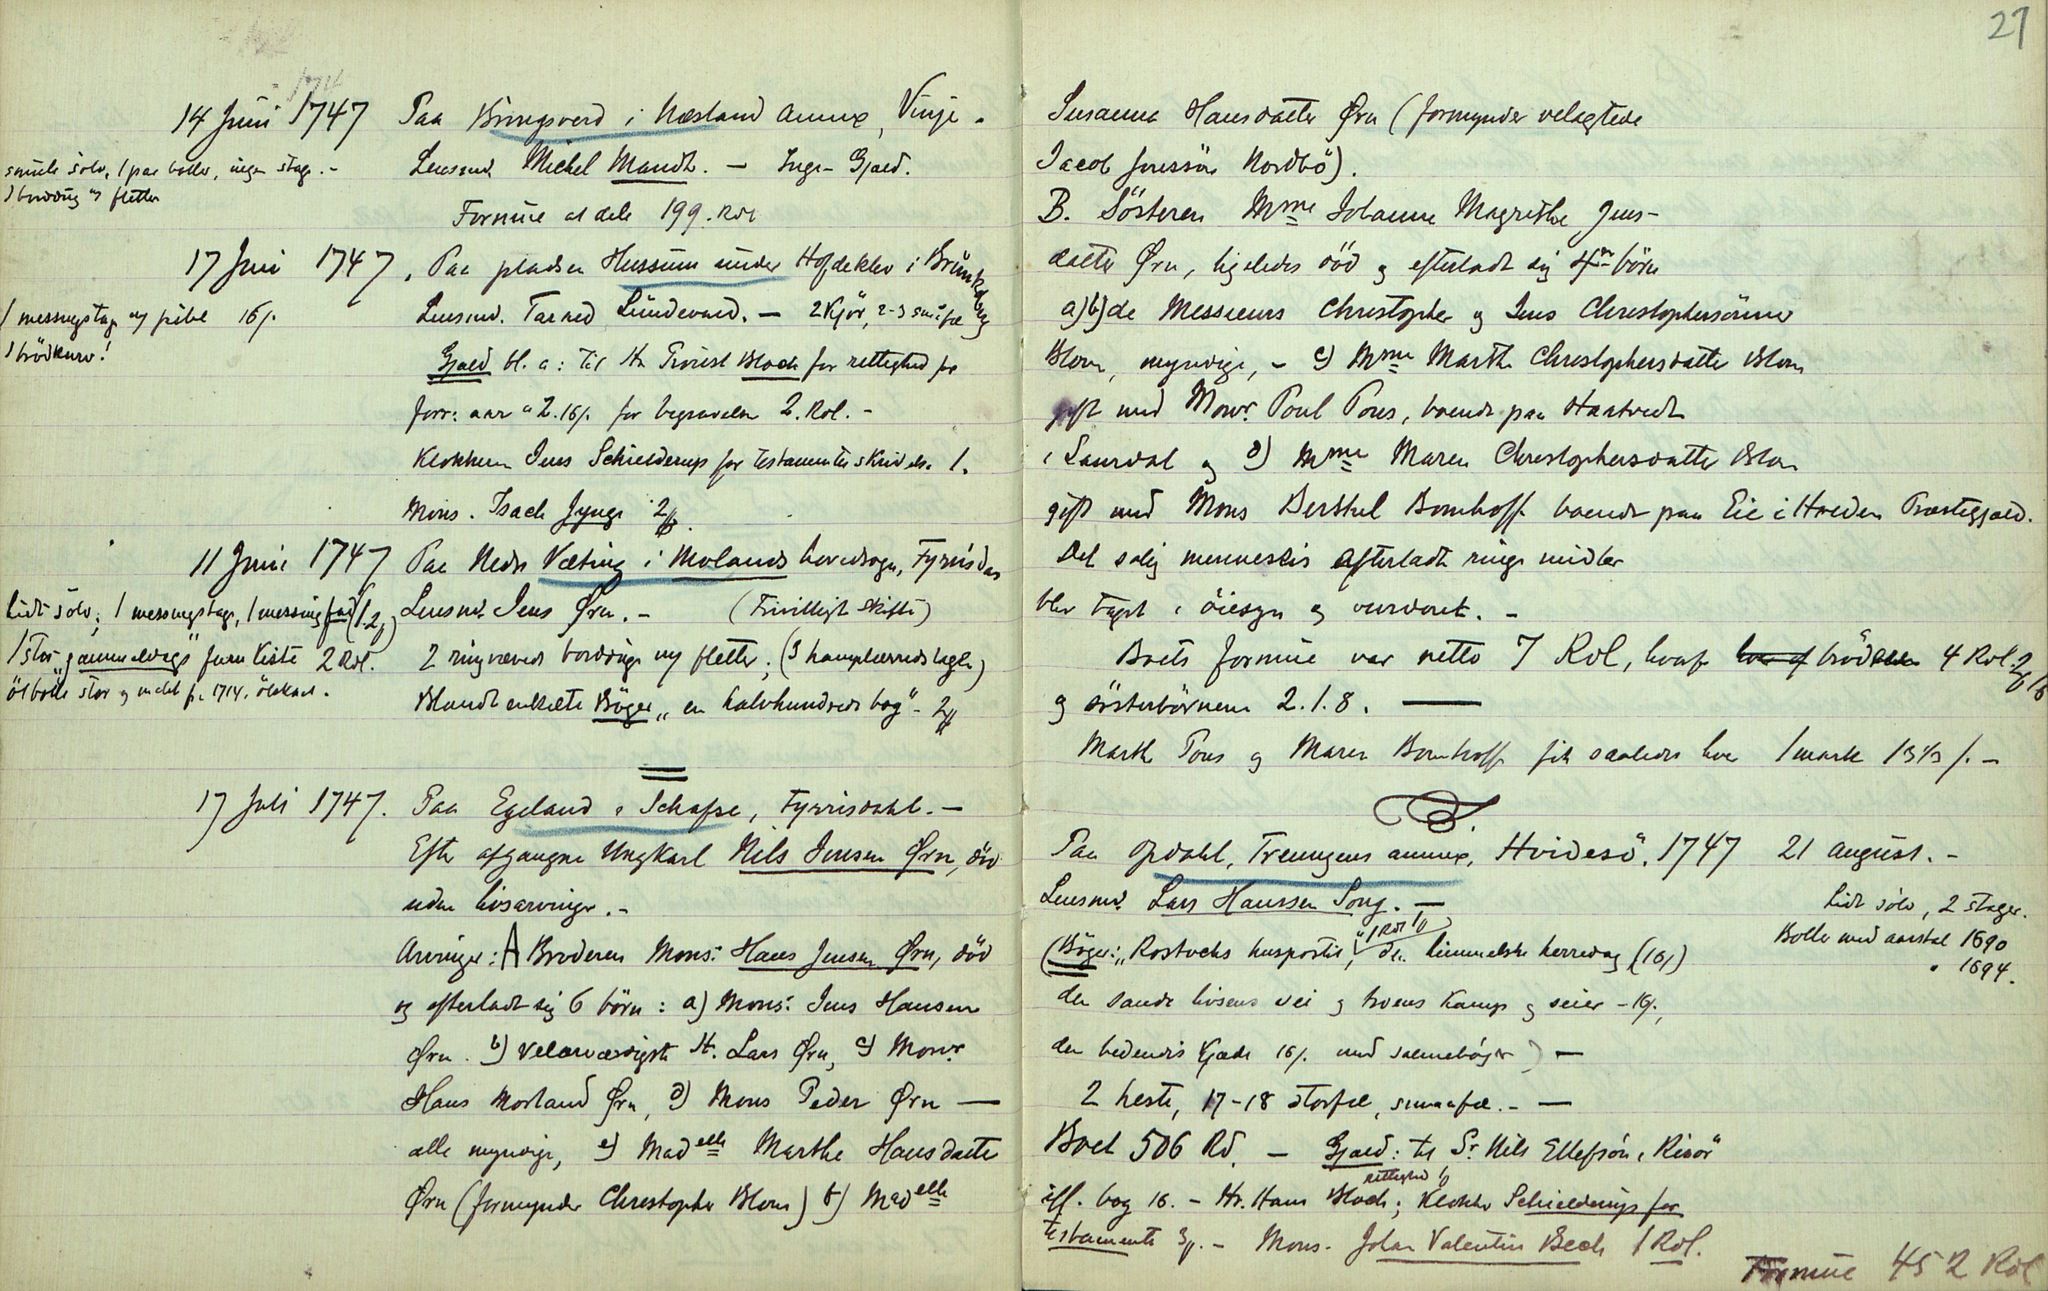 14 Juni 1747 Paa Bringsverd i Næsland annex, Vinje.
smule sölv, 1 par boller, ingen stage. -
Lensmd. Michel Mandt. — Inge Gjæld.
1 borddug m fletter
Formue at dele 199. Rdl
17 Juni 1747, Paa pladsen Hussum under Hofdeklev i Brunkeberg
1 messingstage og pibe 16/.
Lensmd. Tarald Lundevard. — 2 Kjör, 2-3 småfæ
1 brödkurv!
Gjæld bl. a: til Hr Provst Bloch for rettighed for
forr: aar " 2. 16/. for begravelsen 2. Rdl. -
Klokkeren Jens Schielderup for testamentes skrivelse 1.
Mons. Isach Jynge 2
11 Juni 1747 Paa Nedre Væting i Molands hovedsogn, Fyrrisdal
Lidt sölv; 1 messingstage, 1 messingfad
Lensmd. Jens Ørn. — (Frivilligt skifte)
1 stor "gammeldags" furu kiste 2 Rdl.
2 ringvævede borddúge m fletter;
ölbolle stor og malet fr. 1714, ölskaal.
Blandt enkelte Böger " en halvhundreds bog" - 2
17 Juli 1747. Paa Egeland i Schafse, Fyrrisdahl. —
Efter afgangne Ungkarl Nils Jensen Ørn, död
uden livsarvinger. -
Arvinger: A Broderen Mons: Hans Jensen Ørn, död
og efterladt sig 6 börn: a) Mons: Jens Hansen
Ørn. b) Velærværdigste Hr. Lars Ørn, c) Monsr.
Hans Morland Ørn, d) Mons Peder Ørn —
alle myndige, e) Madelle Marthe Hansdatter
Ørn (formynder Christopher Blom) f) Madelle
27
Susanna Hansdatter Ørn (formynder velagtede
Jacob Jenssön Nordbö).
B. Sösteren Mme Johanne Magrethe Jens-
datter Ørn, ligeledes död og efterladt sig 4re börn
a) b) de Messieurs Christopher og Jens Christophersönner
Blom, myndige, - c) Mme Marthe Christophersdatter Blom
gift med Monsr. Poul Pons, boende paa Haatvedt
i Laurdal og d) Mme Maren Christophersdatter Blom
gift med Mons Berthel Bomhoff boende paa Eie i Hviden Præstegjæld.
Det salig menneskis efterladte ringe midler
blev taget i öiesyn og vurderet. -
Boets formue var netto 7 Rdl, hvoraf brödrene 4 Rdl.
og sösterbörnene 2. 1. 8. —
Marthe Pons og Maren Bomhoff fik saaledes hver 1 mark 13 1/3 /. -
Paa Opdahl, Treungens annex, Hvidesö. 1747 21 august. -
Lensmd. Lars Hanssen Song. — Lidt sölv, 2 stager.
Boller med aarstal 1690
" 1694.
(Böger: "Rostochs huspostil", 1 Rdl den himmelske herredag (16/)
den sande livsens vei og troens Kamp og seier - 16/.,
den bedendis Kjæde 16/. med salmebøger) —
2 heste, 17-18 storfæ, smaafæ. - —
Boet 506 Rd. — Gjæld: til Sr. Nils Ellefsön, Risör
iflf. bog 16. - Hr. Hans Bloch, rettighed; Klokker Schielderup for
testamente 3. - Mons. Johan Valentin Bech 1 Rdl.
Formue 452 Rdl